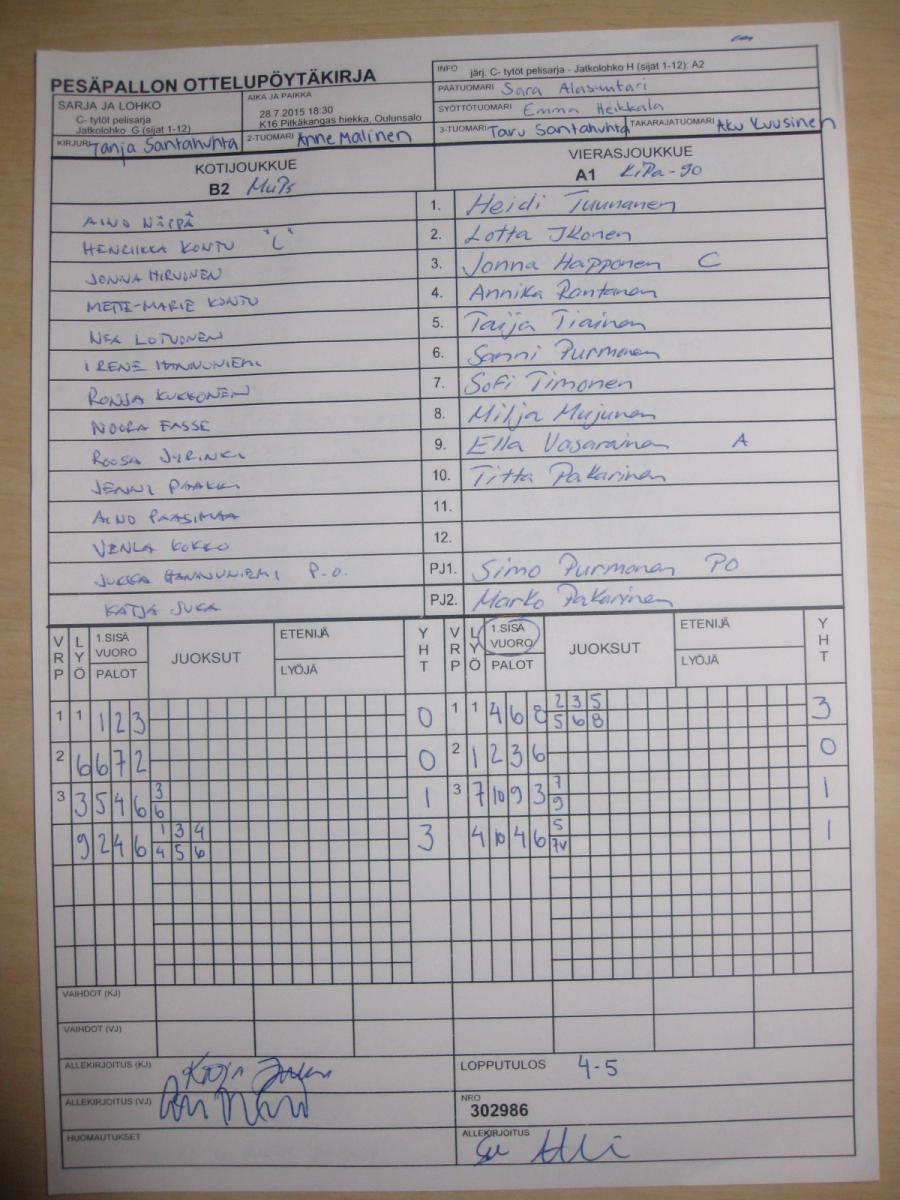 PESÄPALLON OTTELUPÖYTÄKIRJA
INFO järj. C- tytöt pelisarja - Jatkolohko H (sijat 1-12): A2
PÄÄTUOMARI Sara Alasuutari
SARJA JA LOHKO
C- tytöt pelisarja
Jatkolohko G (sijat 1-12)
AIKA JA PAIKKA
28.7.2015 18:30
K16 Pitkäkangas hiekka, Oulunsalo
SYÖTTÖTUOMARI Emma Heikkala
KIRJURI Tanja Santahuhta 2-TUOMARI Anne Malinen 3-TUOMARI Taru Santahuhta TAKARAJATUOMARI Aku Kuusinen
KOTIJOUKKUE VIERASJOUKKUE
B2 MuPs A1 KiPa-90
AINO NÄPPÄ 1. Heidi Tuunanen
HENRIIKKA KONTU "L" 2. Lotta Ikonen
JONNA HIRVONEN 3. Jonna Happonen C
METTE-MARIE KONTU 4. Annika Rantanen
NEA LOTVONEN 5. Taija Tiainen
IRENE HANNUNIEMI 6. Sanni Purmonen
RONJA KUKKONEN 7. Sofi Timonen
NOORA FASSE 8. Milja Mujunen
ROOSA JYRINKI 9. Ella Vasarainen A
JENNI PAAKKI 10. Titta Pakarinen
AINO PAASIMAA 11.
VENLA KOKKO 12.
JUKKA HANNUNIEMI P.O. PJ1. Simo Purmonen PO
KATJA JUKA PJ2. Marko Pakarinen
VRP LYÖ 1.SISÄ VUORO PALOT JUOKSUT ETENIJÄ LYÖJÄ YHT VRP LYÖ 1.SISÄ VUORO PALOT JUOKSUT ETENIJÄ LYÖJÄ YHT
1 1 1 2 3 0 1 1 4 6 8 2 3 5 3
5 6 8
2 6 6 7 2 0 2 1 2 3 6 0
3 3 5 4 6 3 1 3 7 10 9 3 7 1
6 9
9 2 4 6 1 3 4 3 4 10 4 6 5 1
4 5 6 7v
VAIHDOT (KJ)
VAIHDOT (VJ)
ALLEKIRJOITUS (KJ) Katja Juka LOPPUTULOS 4-5
ALLEKIRJOITUS (VJ) NRO
302986
HUOMAUTUKSET ALLEKIRJOITUS